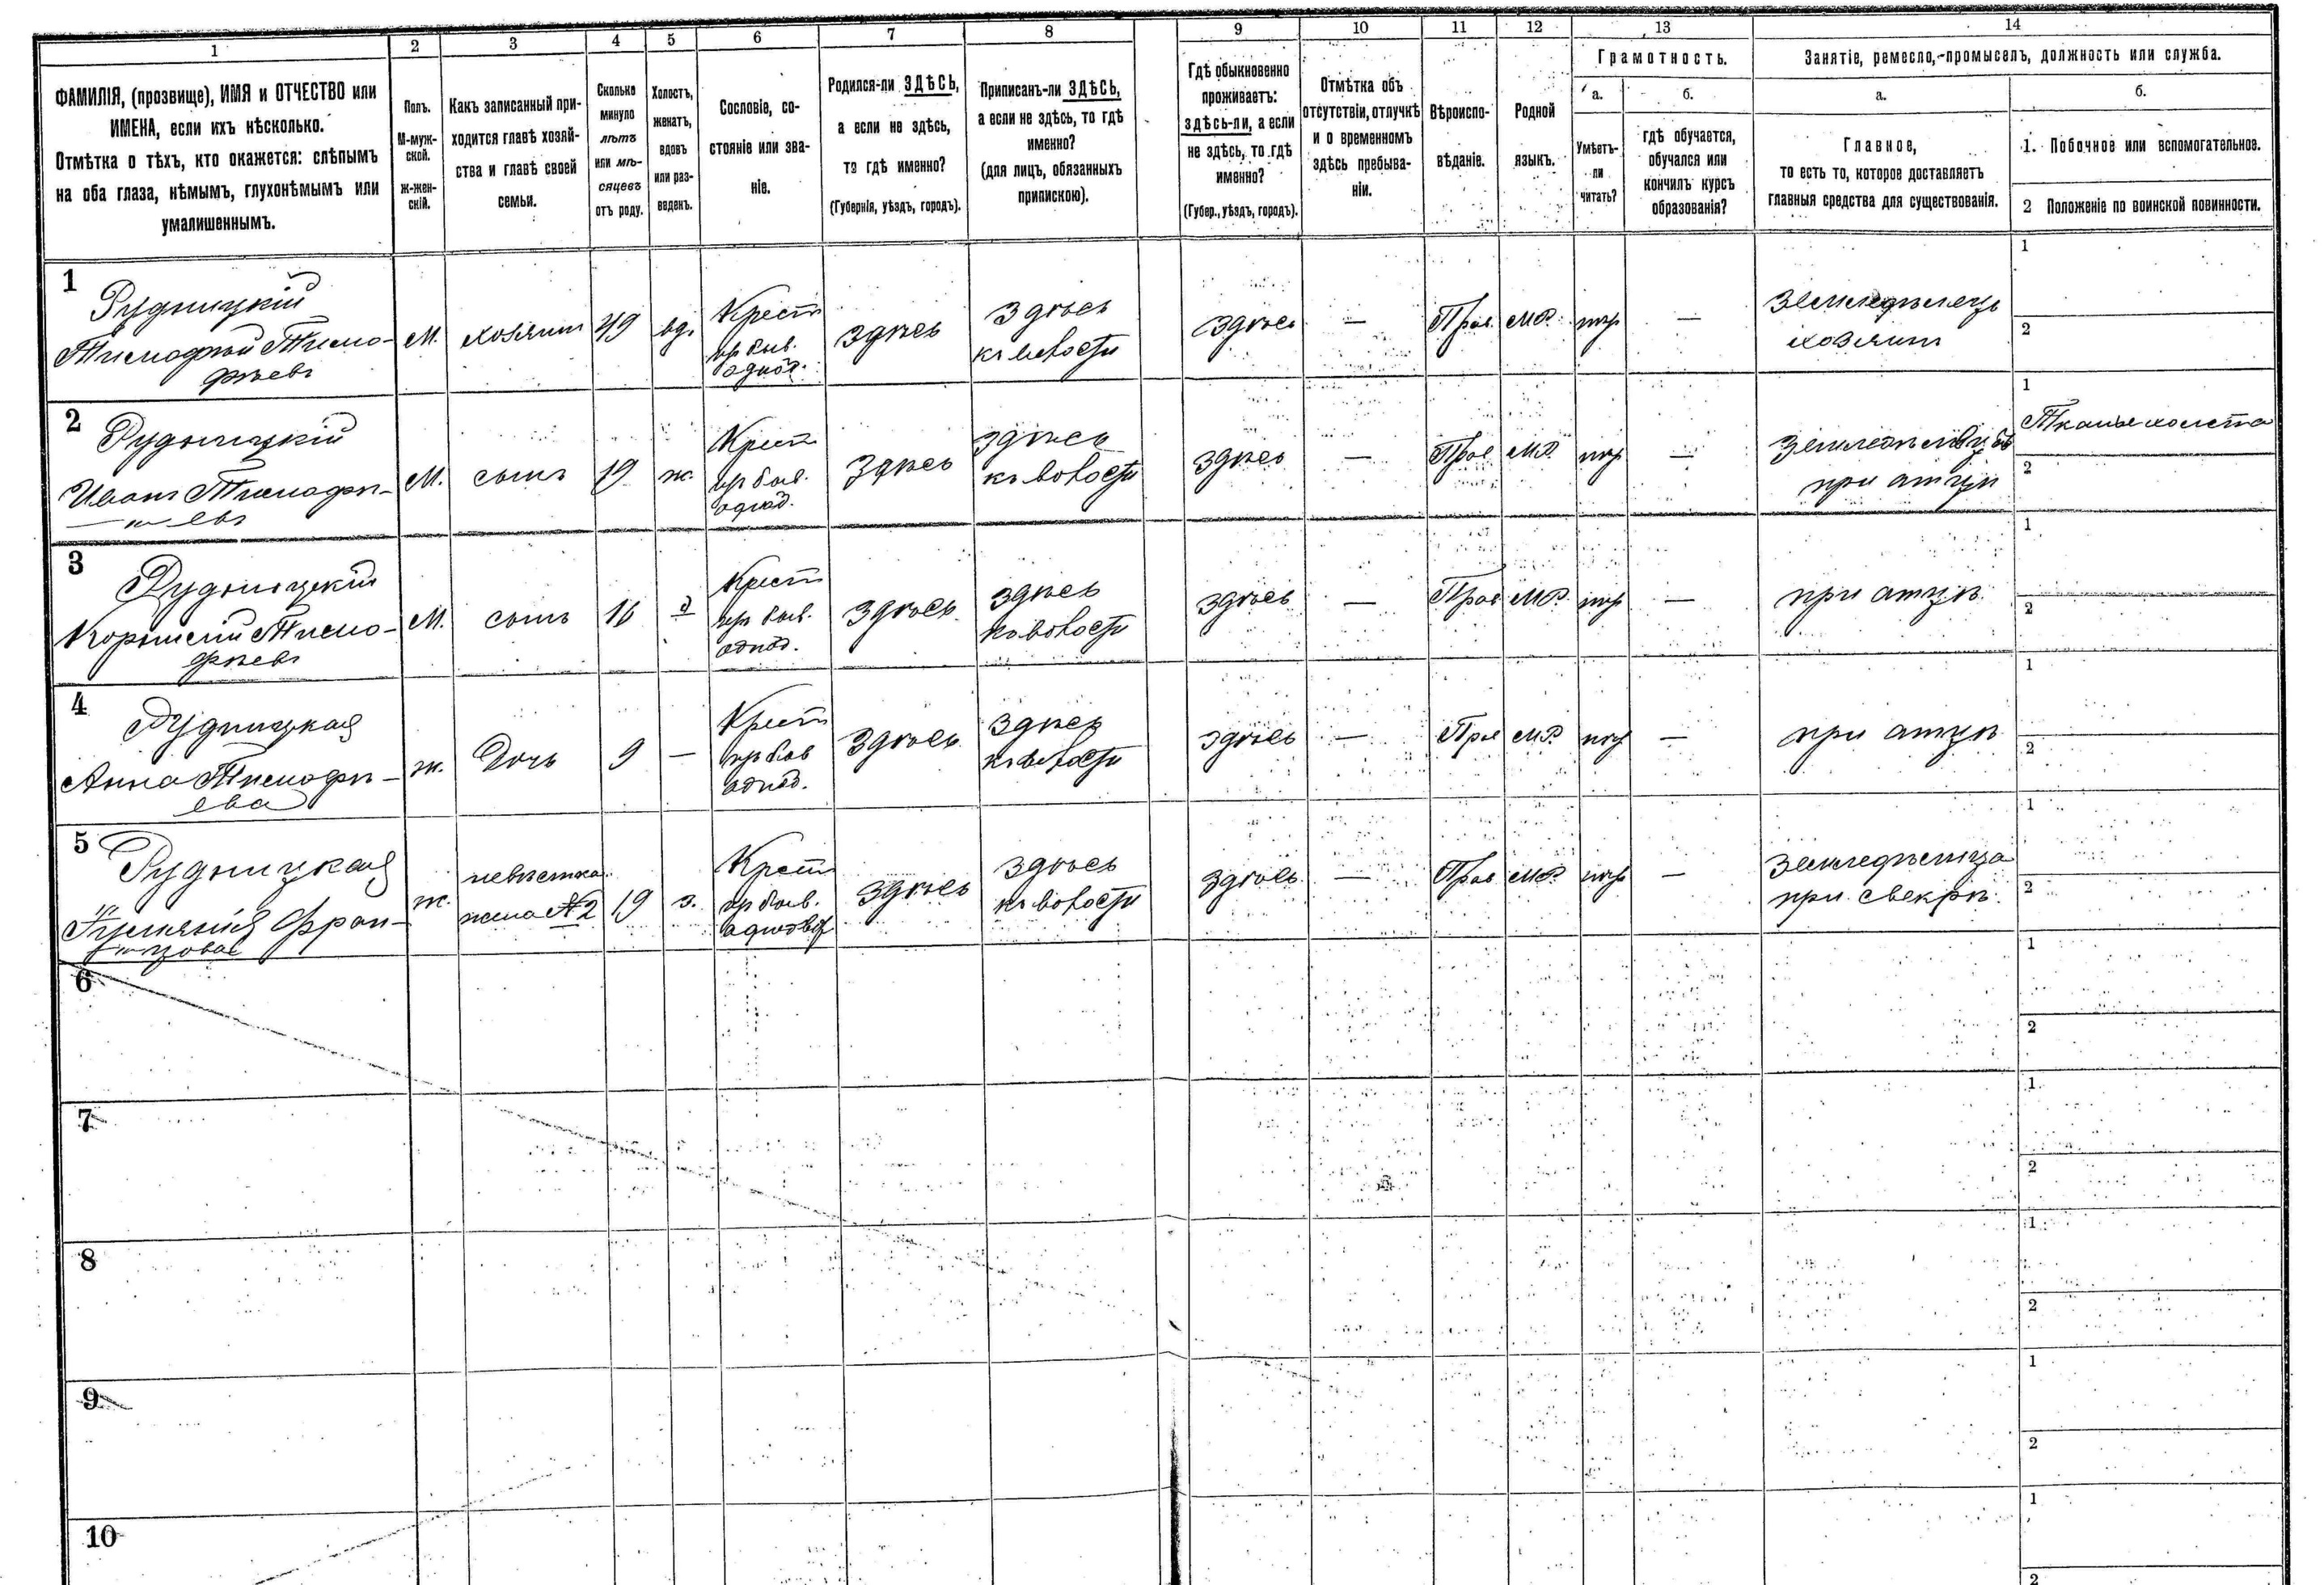 1 2 3 4 5 6 7 8 9 10 11 12 13 14
ФАМИЛІЯ, (прозвище), ИМЯ и ОТЧЕСТВО или
ИМЕНА, если ихъ нѣсколько.
Отмѣтка о тѣхъ, кто окажется: слѣпымъ
на оба глаза, нѣмымъ, глухонѣмымъ или
умалишеннымъ.
Полъ.
М-муж-
ской.
ж-жен-
скій.
Какъ записанный при-
ходится главѣ хозяй-
ства и главѣ своей
семьи.
Сколько
минуло
лѣтъ
или мѣ-
сяцевъ
отъ роду.
Холостъ,
женатъ,
вдовъ
или раз-
веденъ.
Сословіе, со-
стояніе или зва-
ніе.
Родился-ли ЗДѢСЬ,
а если не здѣсь,
то гдѣ именно?
(Губернія, уѣздъ, городъ).
Приписанъ-ли ЗДѢСЬ,
а если не здѣсь, то гдѣ
именно?
(для лицъ, обязанныхъ
припискою).
Гдѣ обыкновенно
проживаетъ:
здѣсь-ли, а если
не здѣсь, то гдѣ
именно?
(Губер., уѣздъ, городъ).
Отмѣтка объ
отсутствіи, отлучкѣ
и о временномъ
здѣсь пребыва-
ніи.
Вѣроиспо-
вѣданіе.
Родной
языкъ.
Грамотность.
а.
Умѣетъ-
ли
читать?
б.
гдѣ обучается,
обучался или
кончилъ курсъ
образованія?
Занятіе, ремесло,-промыселъ, должность или служба.
а.
Главное,
то есть то, которое доставляетъ
главныя средства для существованія.
б.
1. Побочное или вспомогательное.
2 Положеніе по воинской повинности.
1
Рудницкій
Тимофей Тимо-
фѣевъ
М. хозяинъ 49 вд.
Крест
одно
здѣсь
здѣсь
здѣсь — Прав. МР. —
Земледѣлецъ
хозяинъ
1
2
2
Рудницкій
Иванъ Тимофѣ-
евъ
М. сынъ 19 ж.
Крест
здѣсь
здѣсь
здѣсь — Прав МР. —
при отцѣ
1 Тканье холста
2
3
Рудницкій
Корнилій Тимо-
фѣевъ
М. сынъ 16
Крест
здѣсь
здѣсь
здѣсь — Прав МР. —
при отцѣ
1
2
4
Рудницкая
Анна Тимофѣ-
ева
ж. Дочь 9 —
Крест
здѣсь
здѣсь
здѣсь — Прав МР. —
при отцѣ
1
2
5
Рудницкая
Фран-
ж.
невѣстка
жена №2
19 з.
Крест
здѣсь
здѣсь
здѣсь — Прав МР. —
Земледѣлица
при свекрѣ
1
2
6
1
2
7
1
2
8
1
2
9
1
2
10
1
2